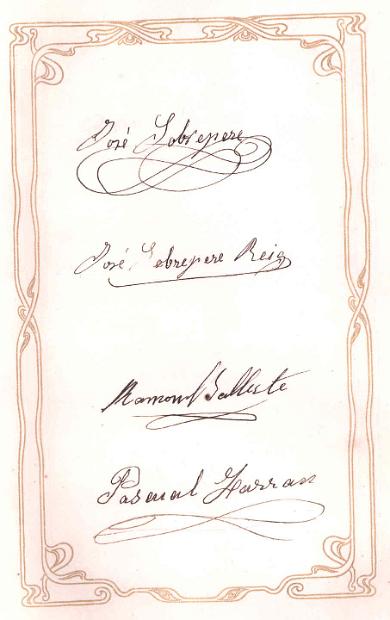 José Sobrepere
José Sobrepere Reig
Ramon Balleste
Pascual Larran